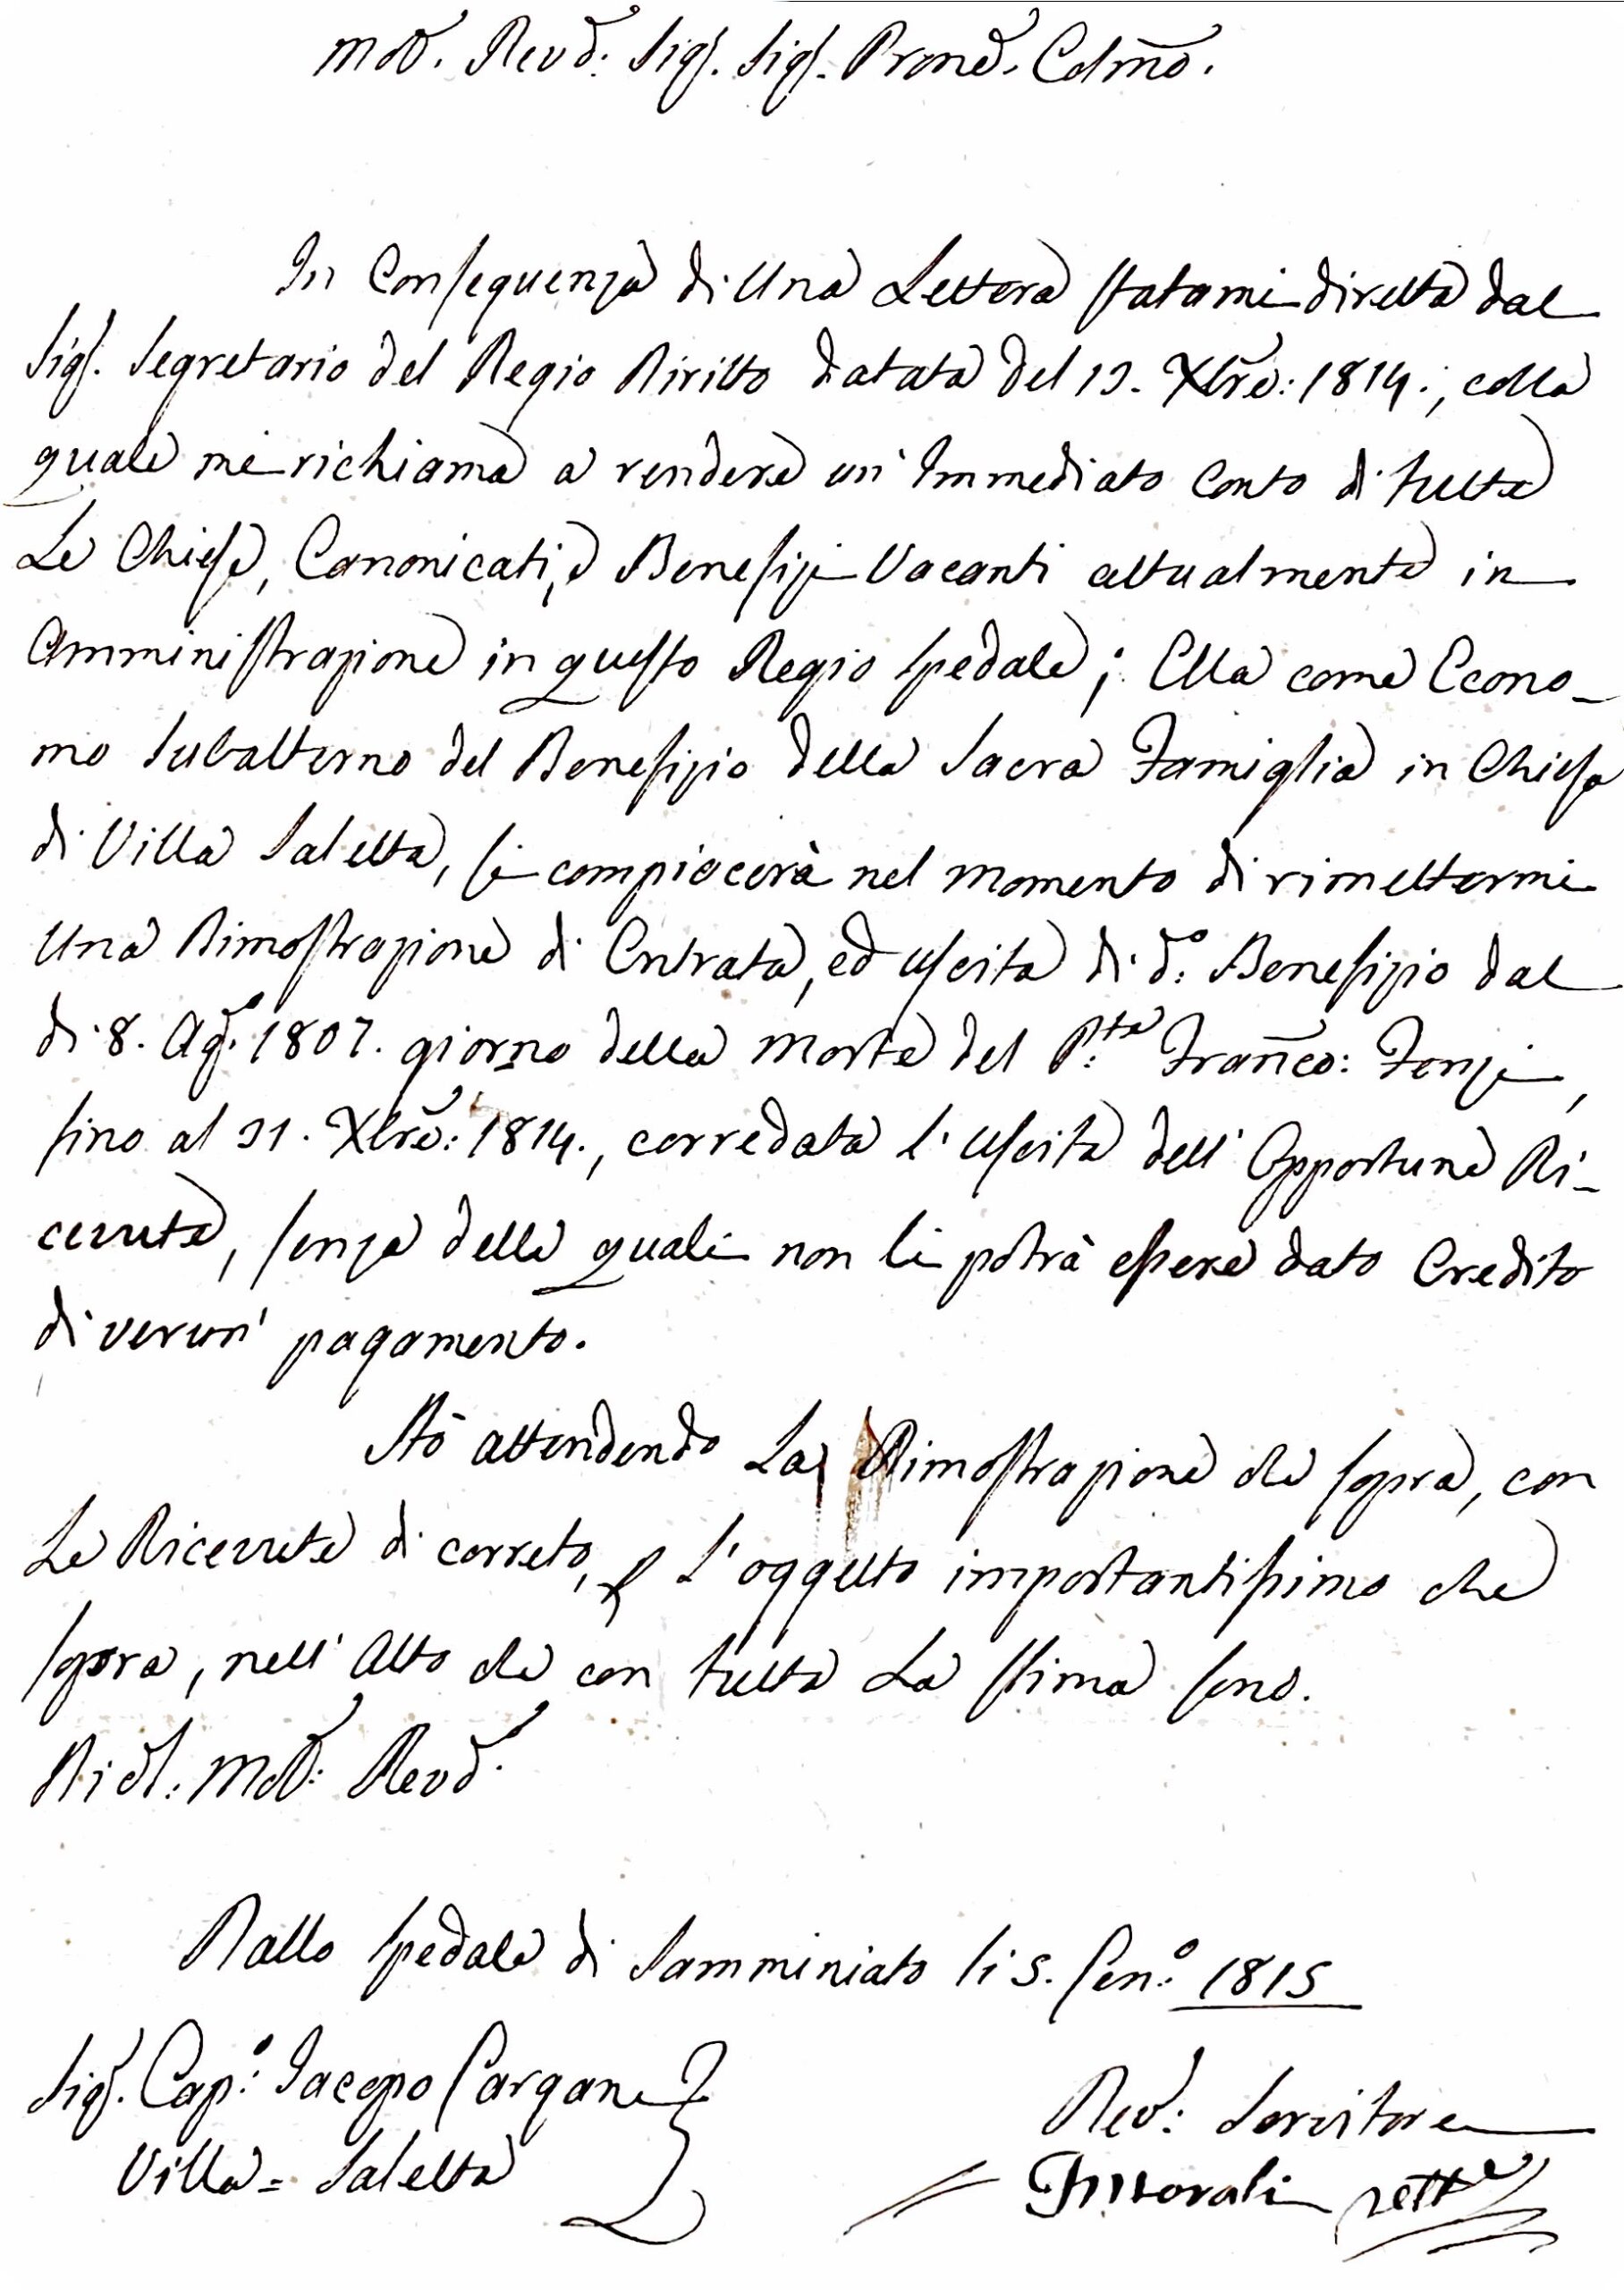 Mol. Revd: Sig. Sig. Prone. Colmo.
In Conseguenza di Una Lettera statami diretta dal
Sig. Segretario del Regio Diritto datata del 13. Xbre: 1814., colla
quale mi richiama a rendere un' Immediato Conto di tutte
Le Chiese, Canonicati, e Benefizj Vacanti attualmente in
Amministrazione in questo Regio Spedale; Ella come Econo-
mo Subalterno del Benefizio della Sacra Famiglia in Chiesa
di Villa Saletta, si compiacerà nel momento di rimettermi
Una Dimostrazione di Entrata, ed uscita di d.o: Benefizio dal
di 8. Ag.o 1807. giorno della Morte del P.te: Franco: Fonzi,
fino al 31. Xbre: 1814., corredata l'uscita dell' Opportune Ri-
cevute, senza delle quali non li potrà essere dato Credito
di verun' pagamento.
Stò attendendo La Dimostrazione che sopra, con
Le Ricevute di correto, p l'oggetto importantissimo che
sopra, nell' Atto che con tutta La stima sono.
Di dt: Mol: Revd.
Dallo Spedale di Samminiato li 5. Gen:o 1815
Sig. Cap:o Jacopo Gargani
Villa = Saletta
Dev: Servitore
Morali rett.e